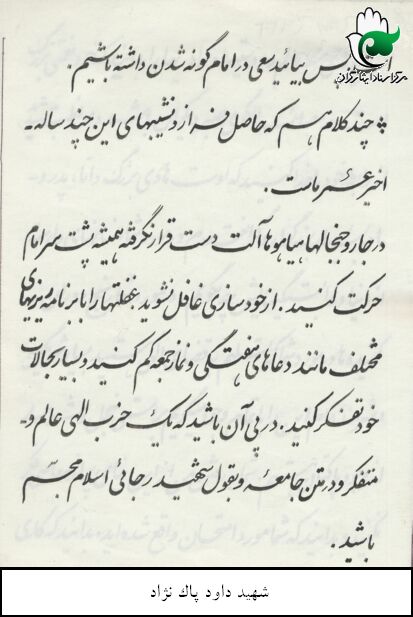 پس بیائید سعی در امام گونه شدن داشته باشیم.
* چند کلام هم که حاصل فراز و نشیبهای این چند ساله
اخیر عمر ماست.
در جار و جنجالها و هیاهوها آلت دست قرار نگرفته همیشه پشت سر امام
حرکت کنید. از خودسازی غافل نشوید غفلتها را با برنامه ریزیهای
مختلف مانند دعاهای هفتگی و نماز جمعه کم کنید و بسیار بحالات
خود تفکر کنید. در پی آن باشید که یک حزب الهی عالم و
متفکر و در متن جامعه و بقول شهید رجائی اسلام مجسّم
باشید.
شهید داود پاک نژاد